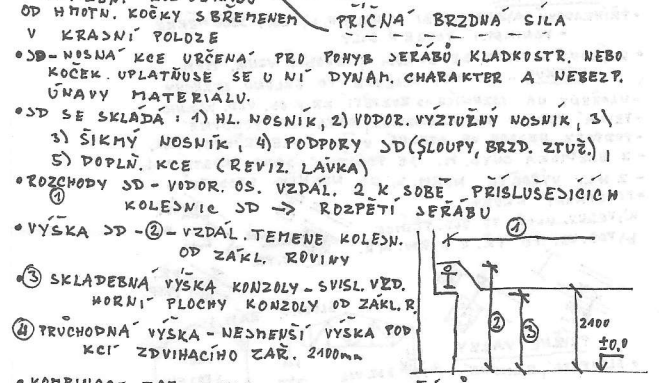 OD HMOTN. KOČKY S BŘEMENEM
V KRAJNÍ POLOZE
PŘÍČNÁ BRZDNÁ SÍLA
• JD - NOSNÁ KCE URČENÁ PRO POHYB JEŘÁBŮ, KLADKOSTR. NEBO
KOČEK. UPLATŇUJE SE U NÍ DYNAM. CHARAKTER A NEBEZP.
ÚNAVY MATERIÁLU.
• JD SE SKLÁDÁ: 1) HL. NOSNÍK, 2) VODOR. VYZTUŽNÝ NOSNÍK, 3)
3) ŠIKMÝ NOSNÍK 4) PODPORY JD (SLOUPY, BRZD. ZTUŽ.),
5) DOPLŇ. KCE (REVIZ. LÁVKA)
• ROZCHODY JD - VODOR. OS. VZDÁL. 2 K SOBĚ PŘÍSLUŠEJÍCÍCH
① KOLEJNIC JD → ROZPĚTÍ JEŘÁBU
• VÝŠKA JD - ② - VZDÁL. TEMENE KOLEJN.
OD ZÁKL. ROVINY
• ③ SKLADEBNÁ VÝŠKA KONZOLY - SVISL. VZD.
HORNÍ PLOCHY KONZOLY OD ZÁKL. R.
④ PRŮCHODNÁ VÝŠKA - NEJMENŠÍ VÝŠKA POD
KCÍ ZDVIHACÍHO ZAŘ. 2100mm
①
②
③
2100
±0,0